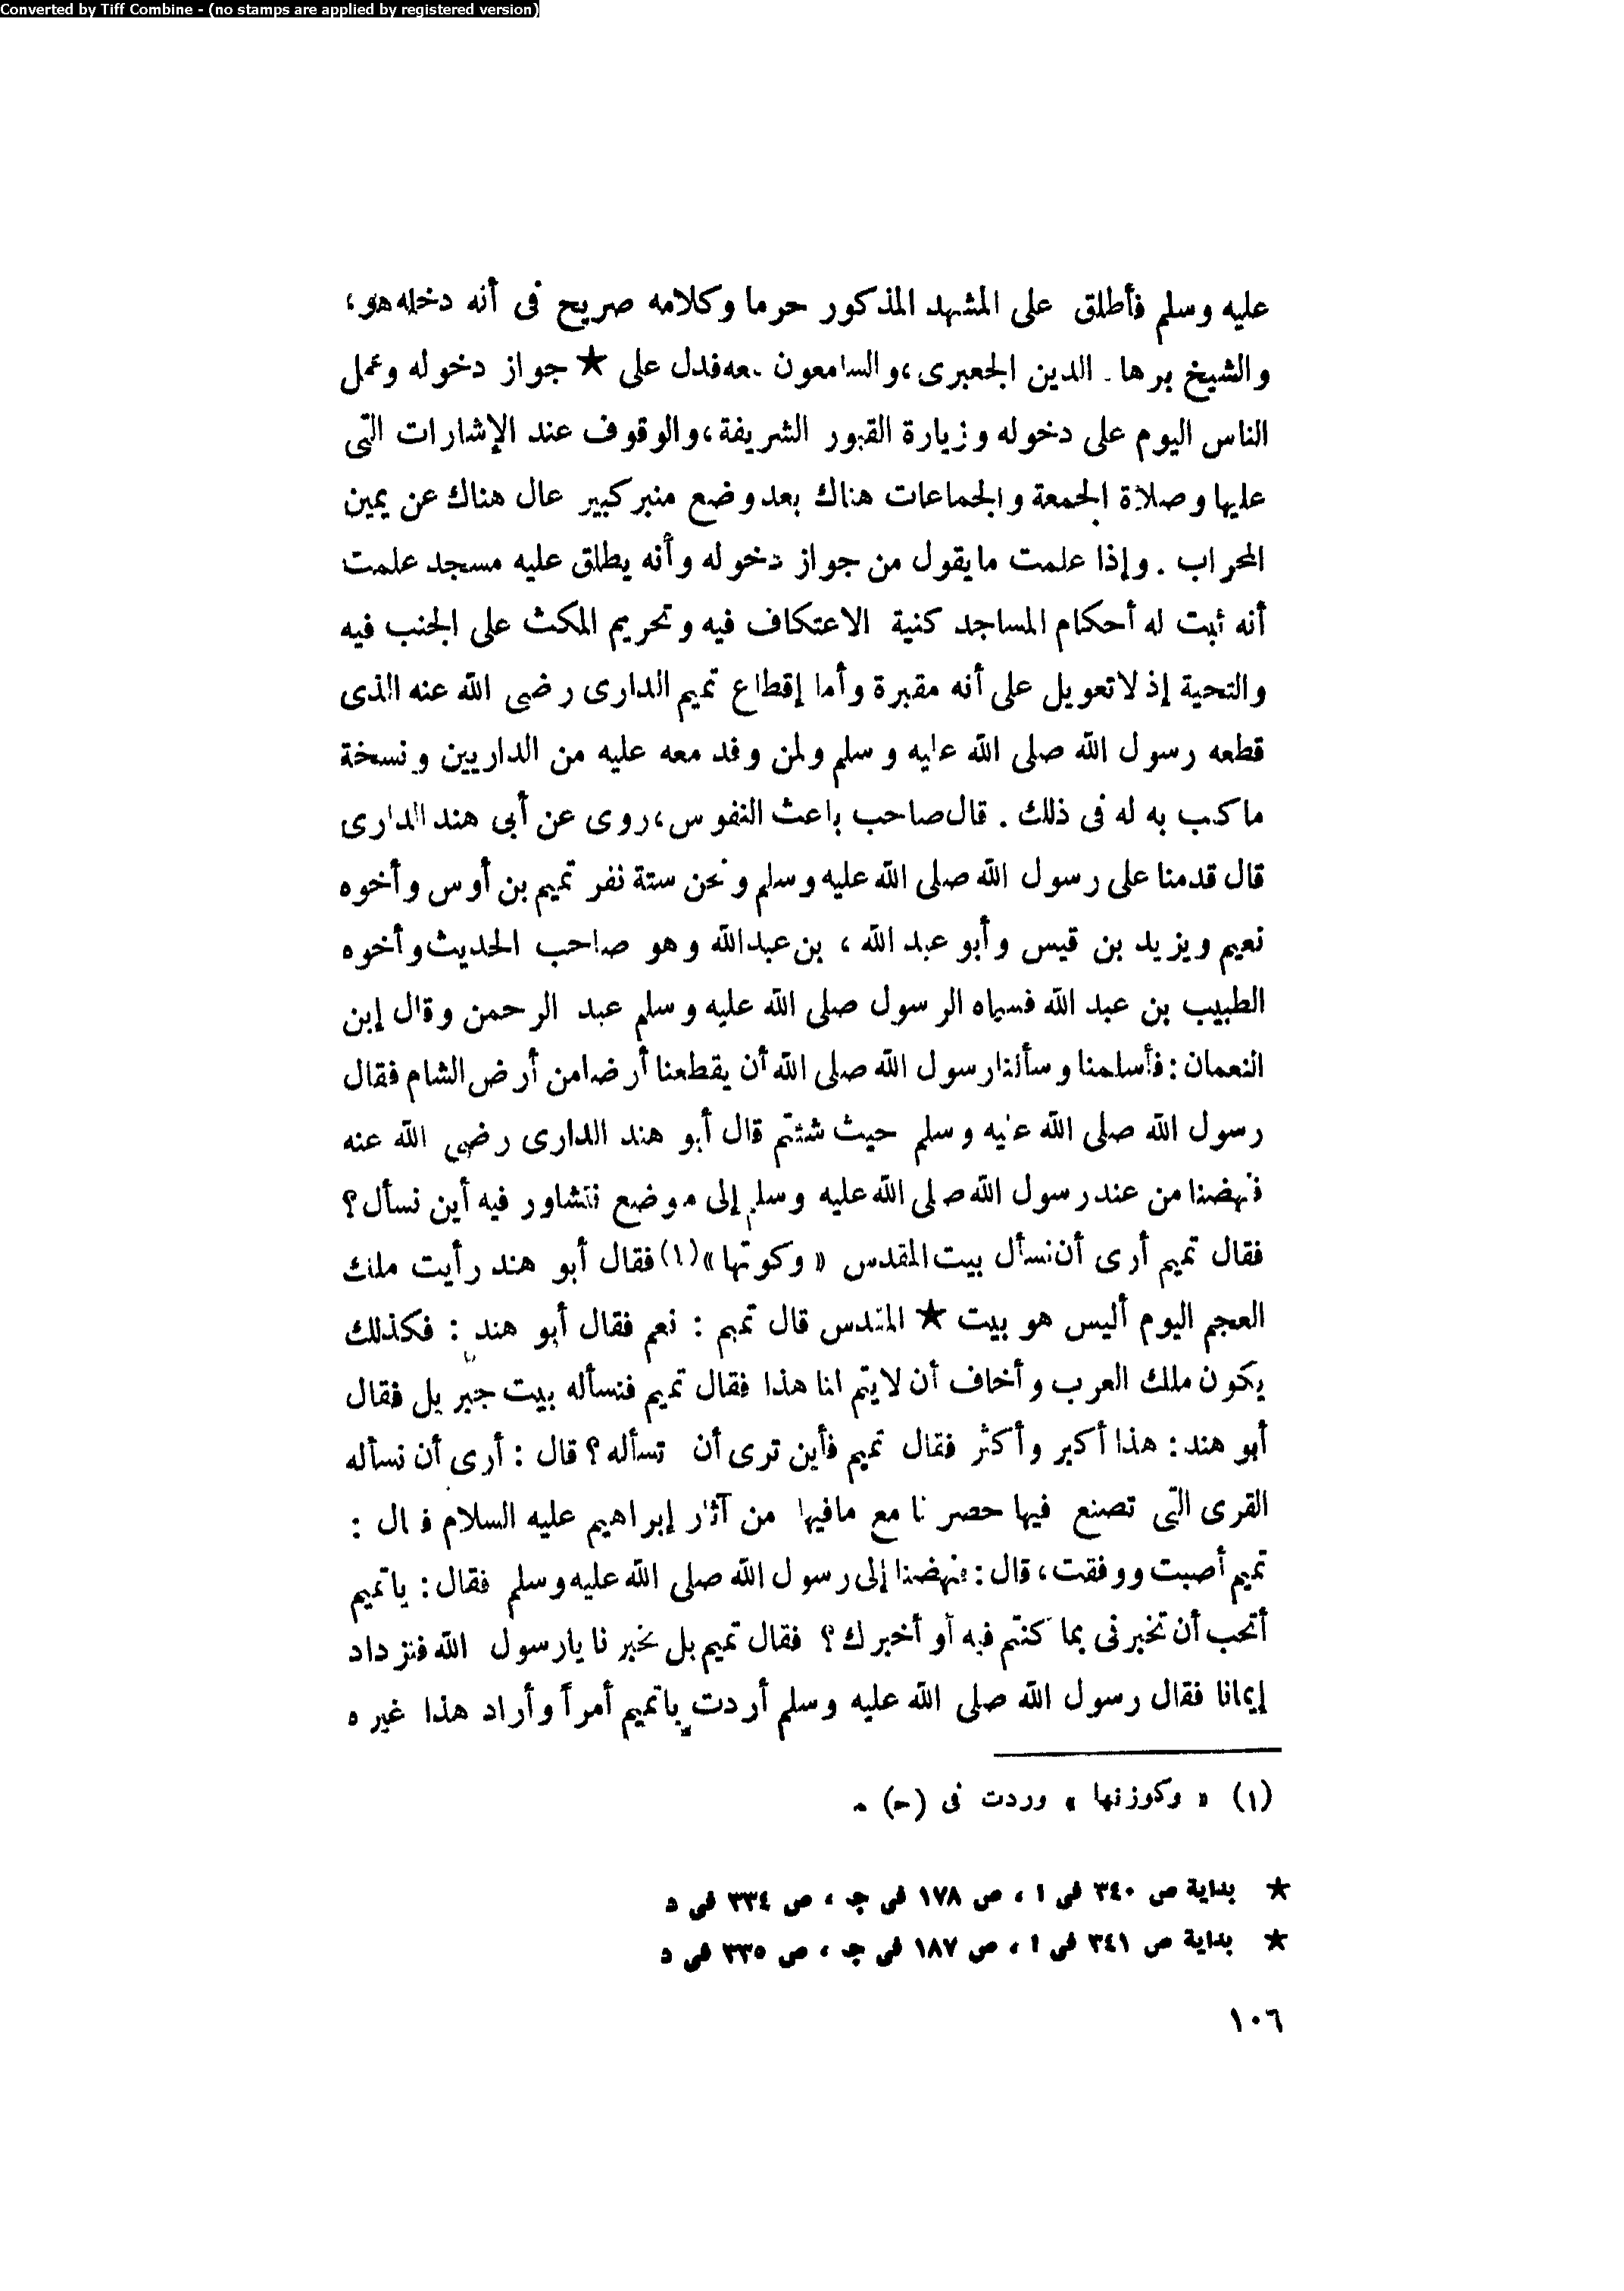 Converted by Tiff Combine - (no stamps are applied by registered version)
عليه وسلم فأطلق على المشهد المذكور حرما وكلامه صريح فى أنه دخله هو،
والشيخ برها. الدين الجعبرى، والسامعون .عه فدل على ★ جواز دخوله وعمل
الناس اليوم على دخوله وزيارة القبور الشريفة، والوقوف عند الإشارات التى
عليها وصلاة الجمعة والجماعات هناك بعد وضع منبر كبير عال هناك عن يمين
المحراب . وإذا علمت ما يقول من جواز دخوله وأنه يطلق عليه مسجد علمت
أنه ثبت له أحكام المساجد كنية الاعتكاف فيه وتحريم المكث على الجنب فيه
والتحية إذ لا تعويل على أنه مقبرة وأما إقطاع تميم الدارى رضى الله عنه الذى
قطعه رسول الله صلى الله عليه وسلم ولمن وفد معه عليه من الداريين ونسخة
ما كتب به له فى ذلك . قال صاحب باعث النفوس، روى عن أبى هند الدارى
قال قدمنا على رسول الله صلى الله عليه وسلم ونحن ستة نفر تميم بن أوس وأخوه
نعيم ويزيد بن قيس وأبو عبد الله ، بن عبد الله وهو صاحب الحديث وأخوه
الطبيب بن عبد الله فسماه الرسول صلى الله عليه وسلم عبد الرحمن وقال إبن
النعمان : فأسلمنا وسألنا رسول الله صلى الله أن يقطعنا أرضا من أرض الشام فقال
رسول الله صلى الله عليه وسلم حيث شئتم قال أبو هند الدارى رضى الله عنه
فنهضنا من عند رسول الله صلى الله عليه وسلم إلى موضع نتشاور فيه أين نسأل؟
فقال تميم أرى أن نسأل بيت المقدس « وكوتها »(١) فقال أبو هند رأيت ملك
العجم اليوم أليس هو بيت ★ المقدس قال تميم : نعم فقال أبو هند : فكذلك
يكون ملك العرب وأخاف أن لا يتم لنا هذا فقال تميم فنسأله بيت جبريل فقال
أبو هند : هذا أكبر وأكثر فقال تميم فأين ترى أن تسأله؟ قال : أرى أن نسأله
القرى التى تصنع فيها حصرنا مع ما فيها من آثار إبراهيم عليه السلام فقال :
تميم أصبت ووفقت، قال : فنهضنا إلى رسول الله صلى الله عليه وسلم فقال : يا تميم
أتحب أن تخبرنى بما كنتم فيه أو أخبرك؟ فقال تميم بل تخبرنا يا رسول الله فنزداد
إيمانا فقال رسول الله صلى الله عليه وسلم أردت يا تميم أمراً وأراد هذا غيره
(١) « وكوزنها » وردت فى (ح) .
★ بداية ص ٣٤٠ فى ا ، ص ١٧٨ فى جـ ، ص ٣٣٤ فى د
★ بداية ص ٣٤١ فى ا ، ص ١٨٧ فى جـ ، ص ٣٣٥ فى د
١٠٦